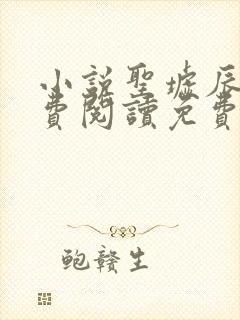 小說聖墟辰
費閱讀免費
鲍赣生